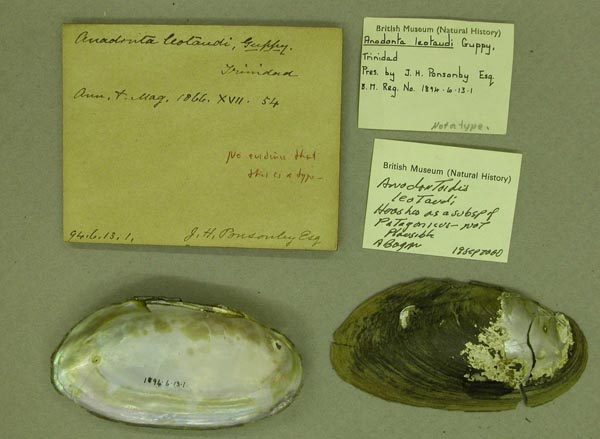 Anadonta leotaudi, Guppy.
Trinidad
Ann. & Mag. 1866. XVII. 54
No evidence that
this is a type
94.6.13.1.
J. H. Ponsonby Esq
British Museum (Natural History)
Anodonta leotaudi Guppy,
Trinidad
Pres. by J. H. Ponsonby Esq.
B.M. Reg. No. 1894.6.13.1
Not a type.
British Museum (Natural History)
Anodontoidis
leotaudi
Haas has as a subsp of
Patagonicus - not
plausible
A Bogan
19 Sep 2000
1894.6.13.1